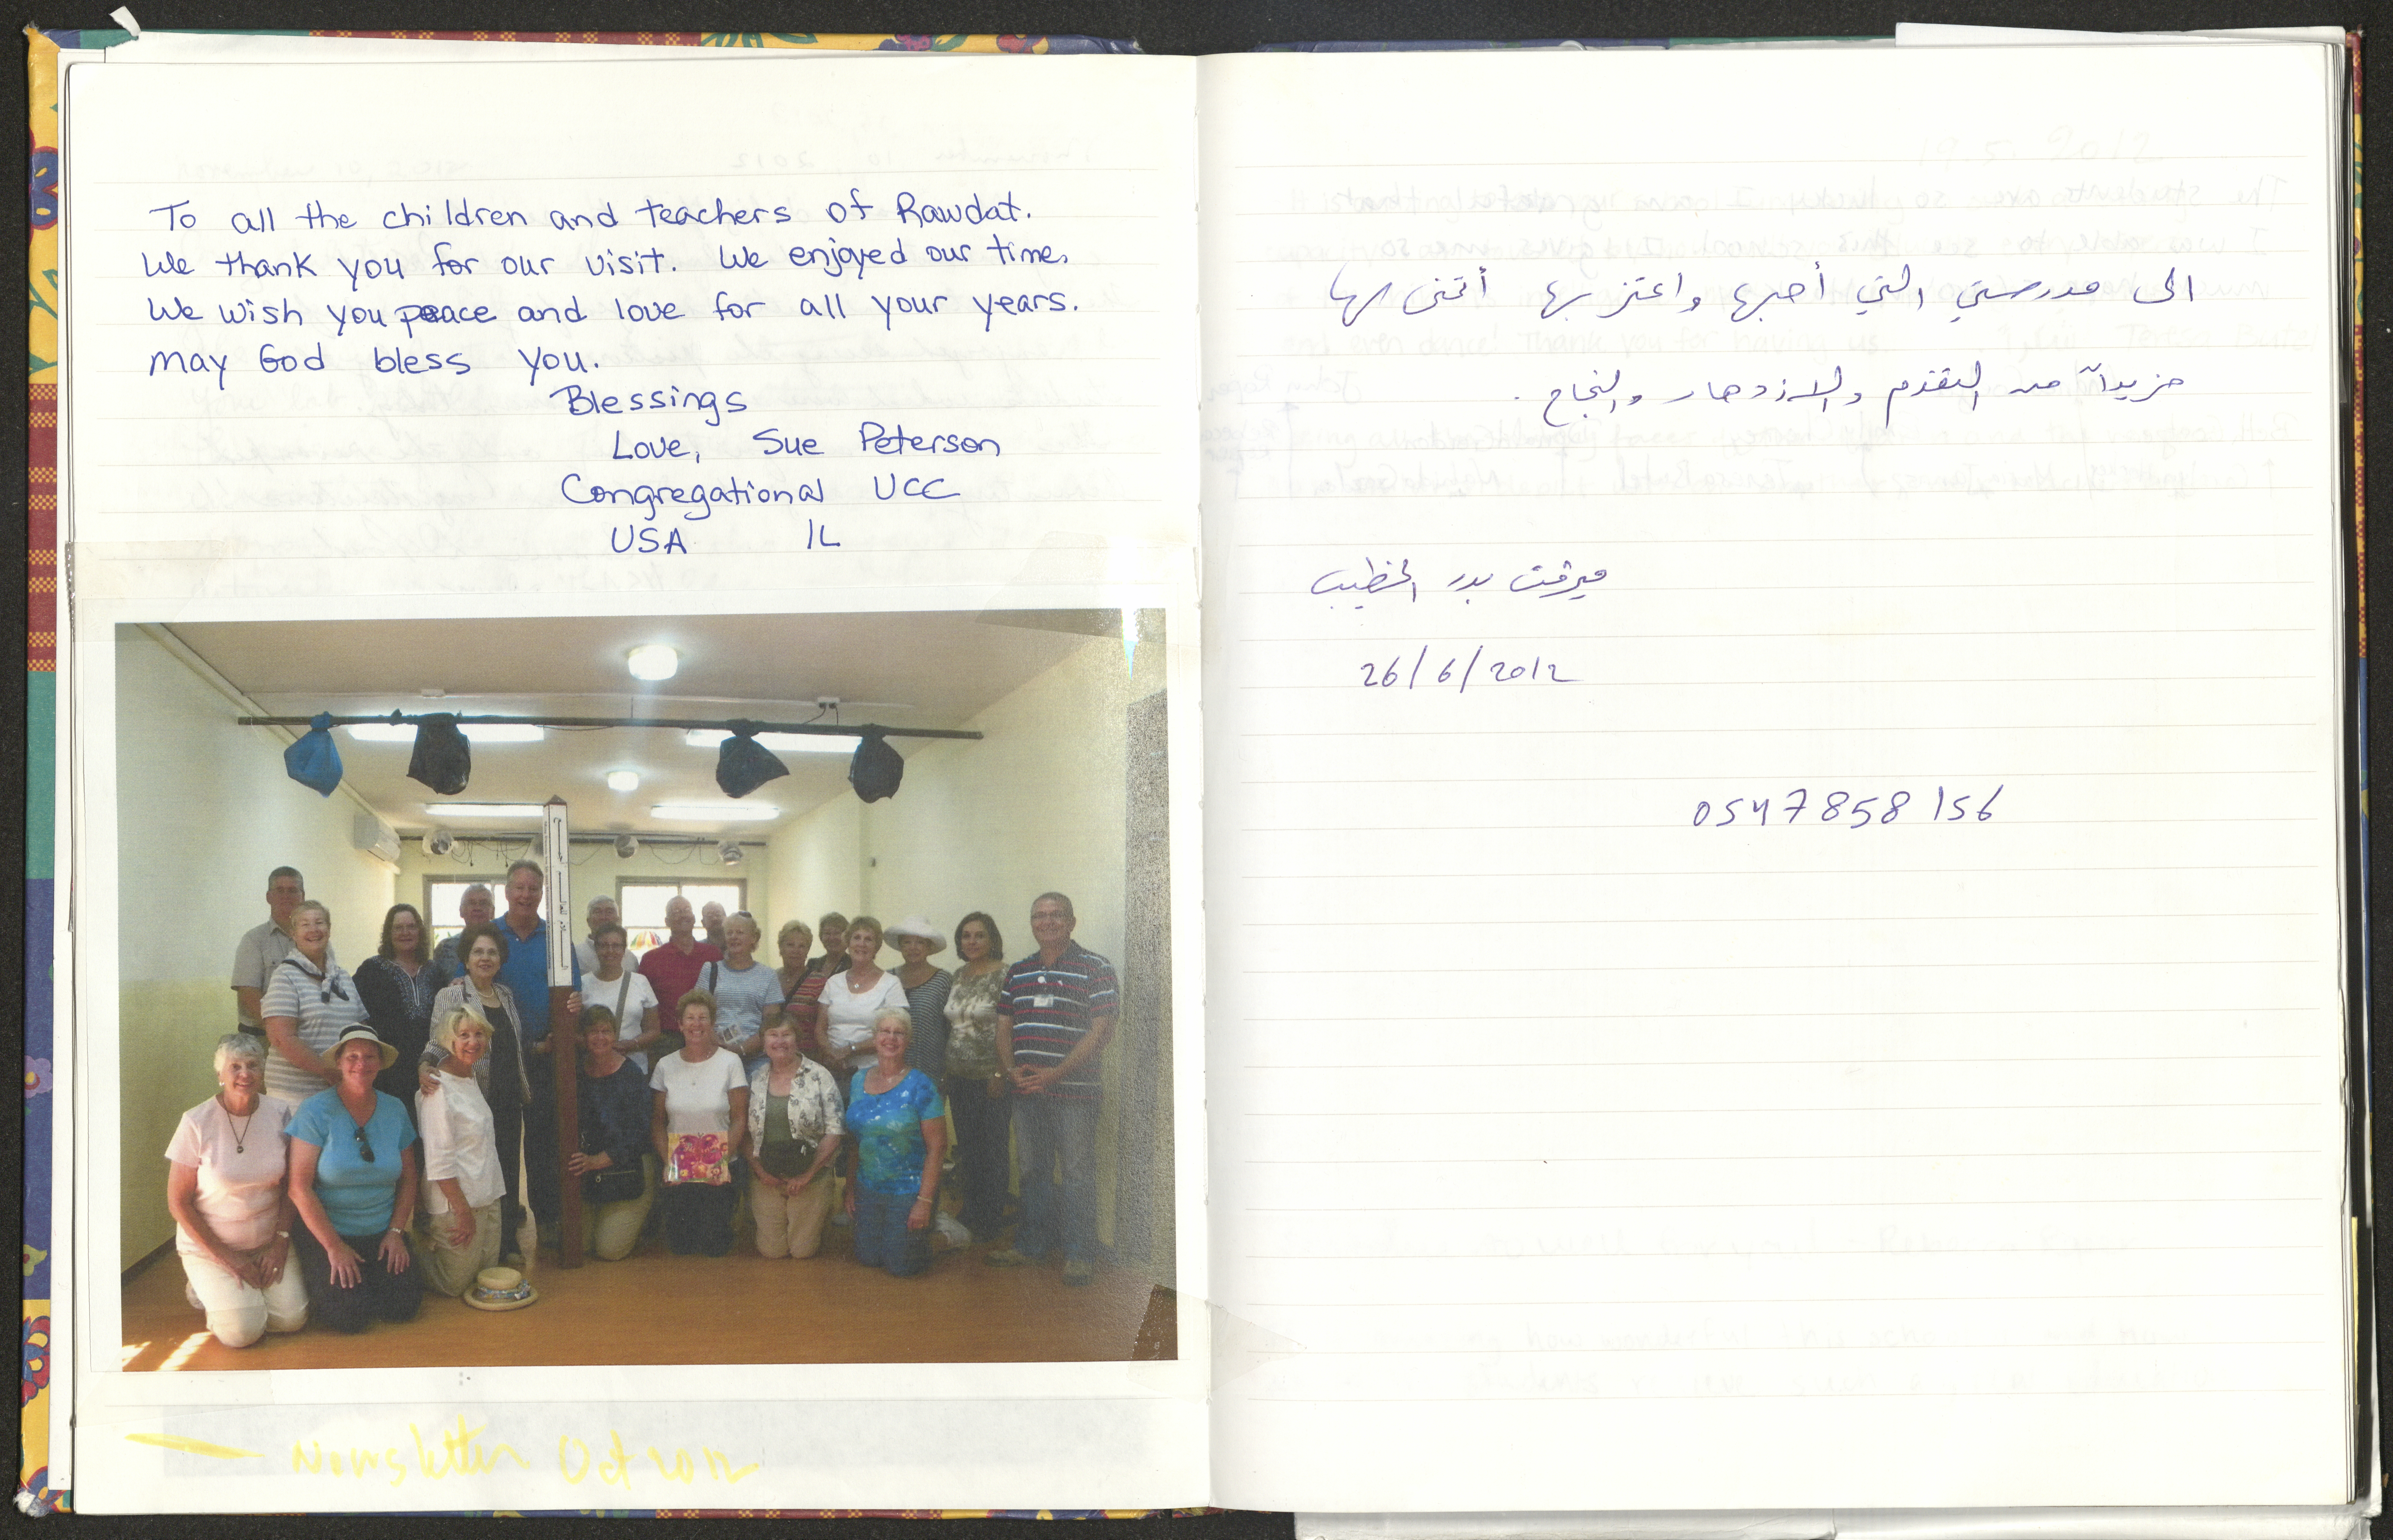 To all the children and teachers of Rawdat.
We thank you for our visit. We enjoyed our time.
We wish you peace and love for all your years.
May God bless you.
Blessings
Love, Sue Peterson
Congregational UCC
USA IL
Newsletter Oct 2012
الى مدرستي التي أحبها واعتز بها أتمنى لها
مزيداً من التقدم والازدهار والنجاح.
ميرفت بدر الخطيب
26/6/2012
0547858156